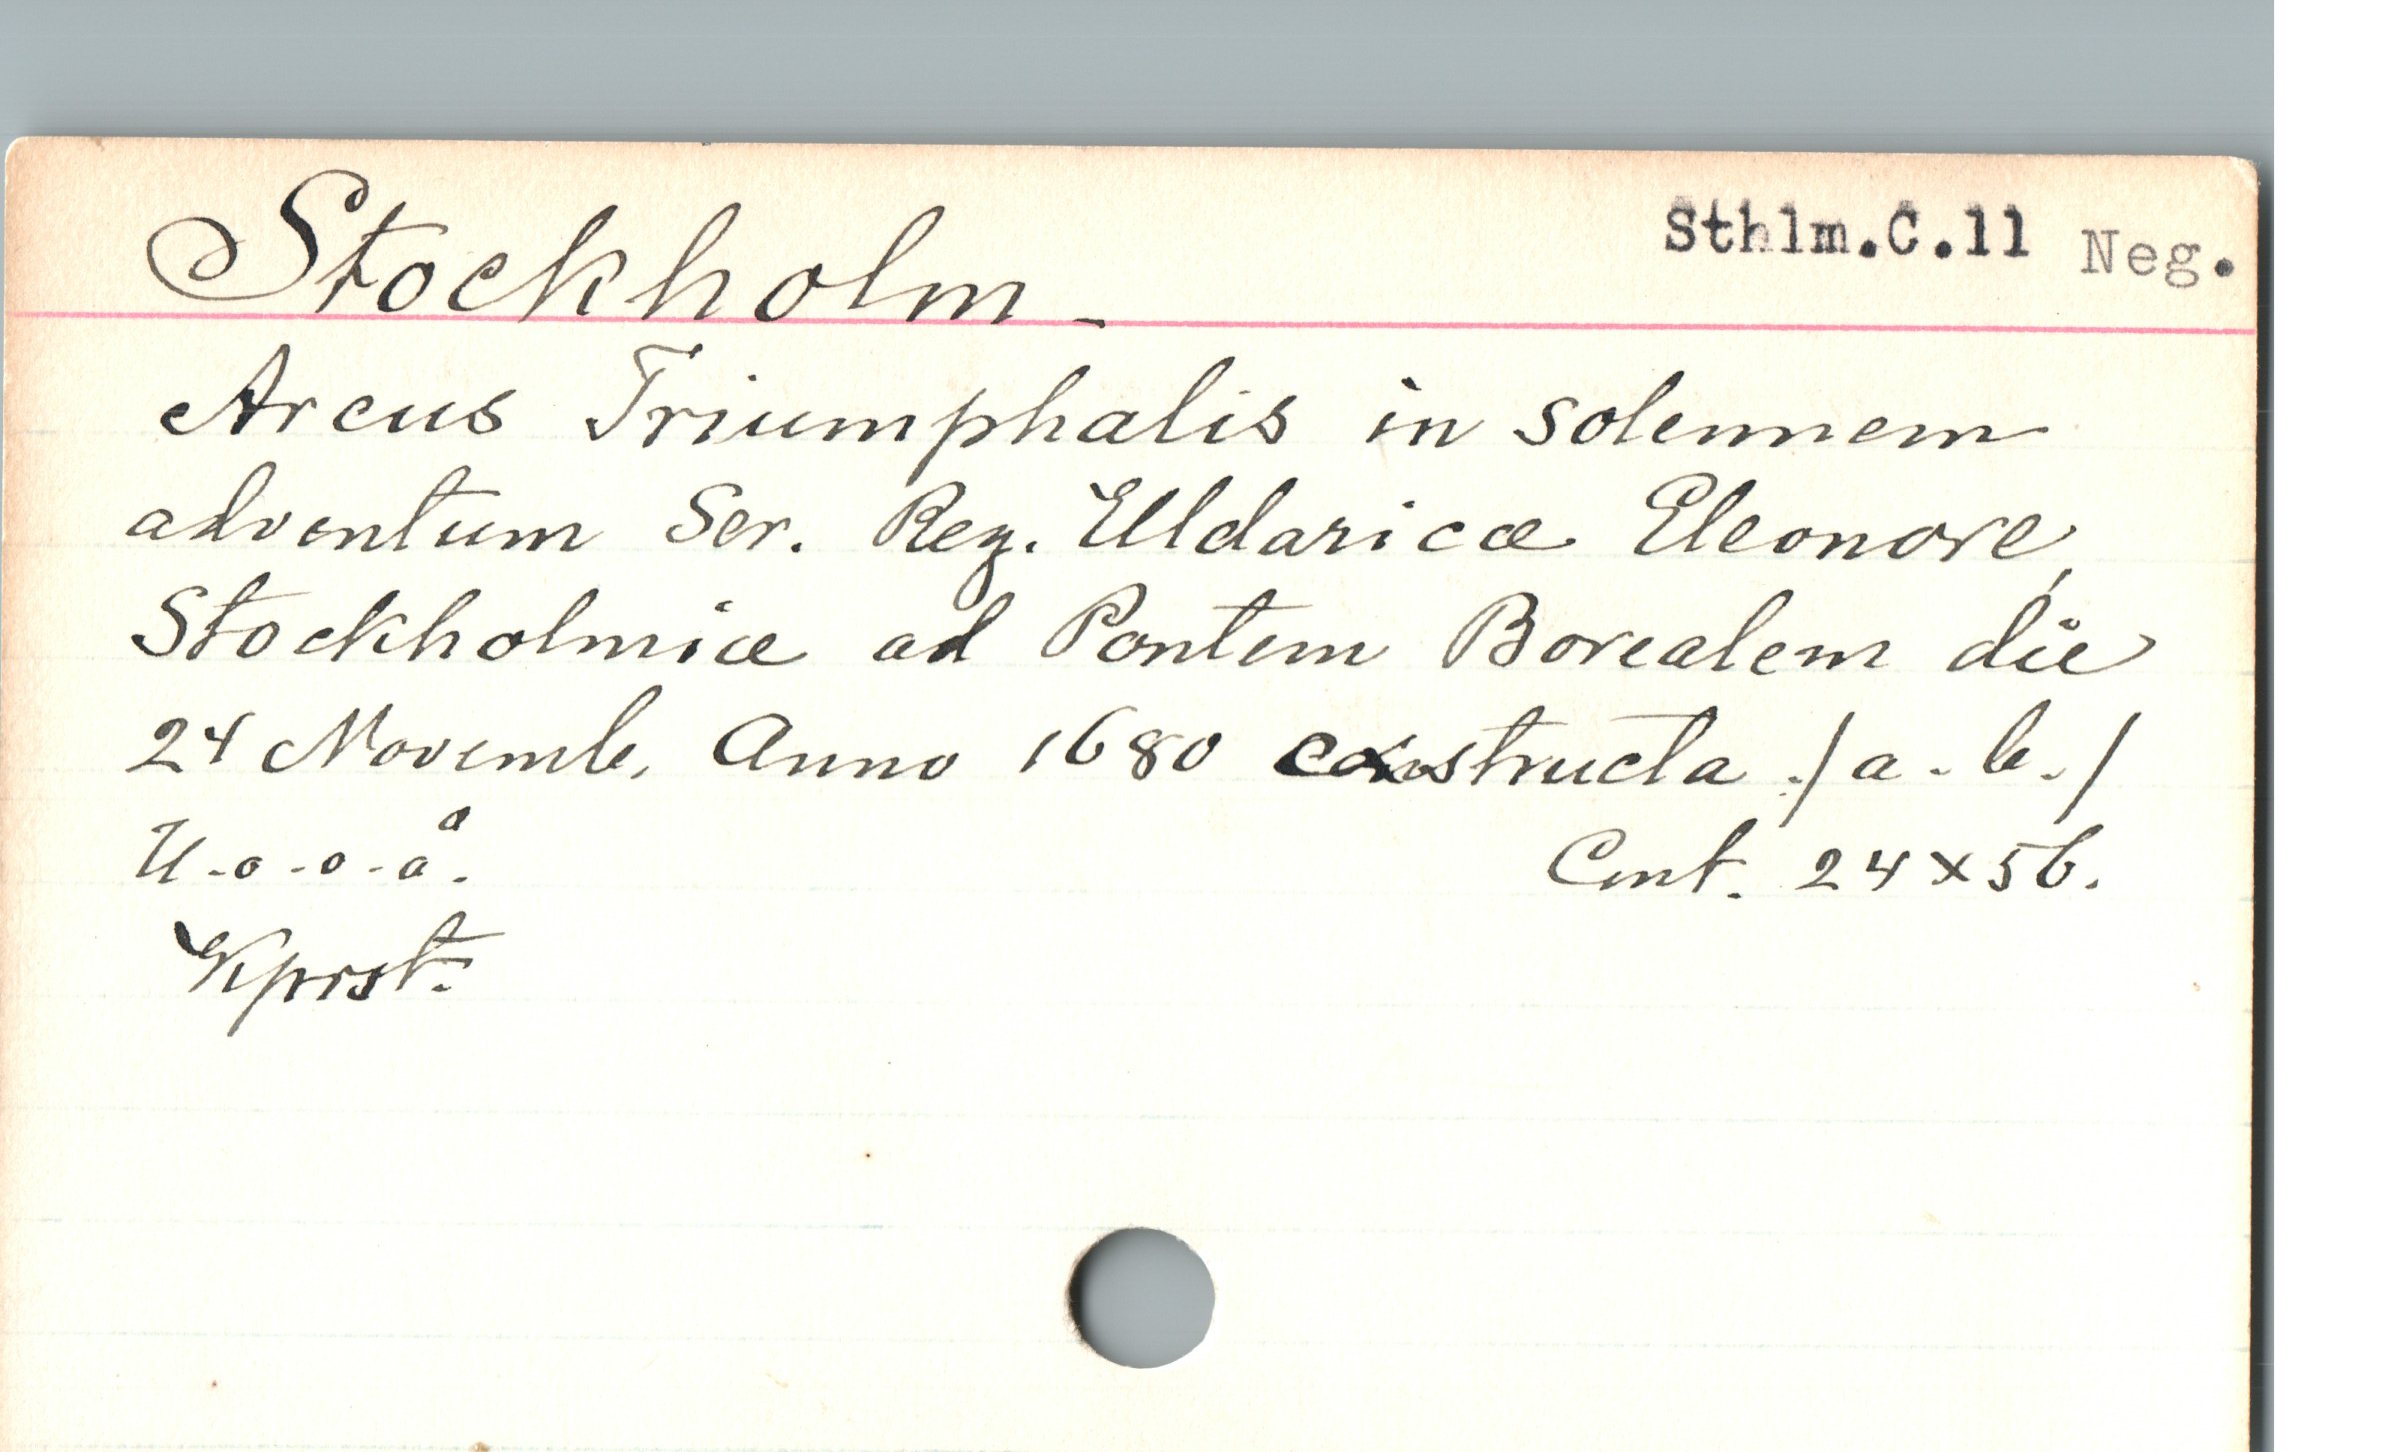 Stockholm.
Sthlm.C.11 Neg.
Arcus Triumphalis in solennem
adventum Ser. Reg. Uldaricæ Eleonore,
Stockholmiæ ad Pontem Borealem die
24 Novemb. Anno 1680 constructa ./a.b./
U.o.o.å.
Cmt. 24x56.
Kprst.